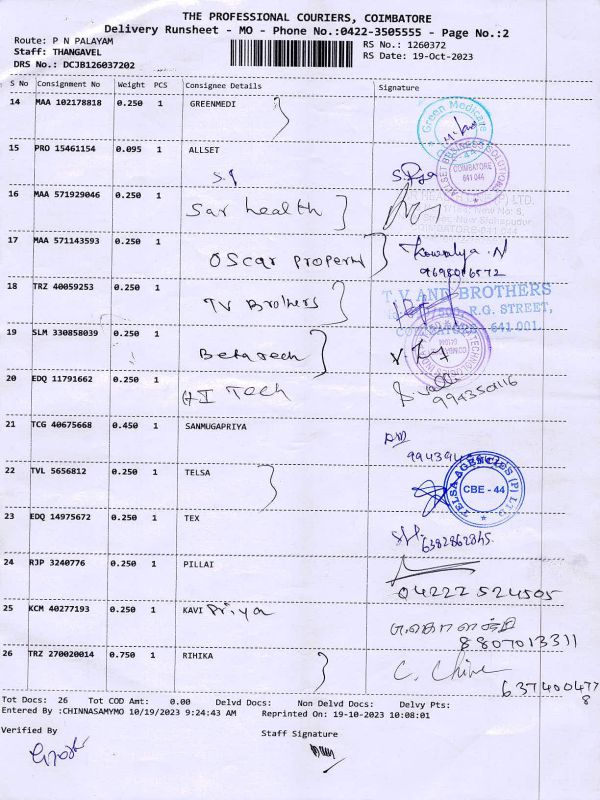 THE PROFESSIONAL COURIERS, COIMBATORE
Delivery Runsheet - MO - Phone No.:0422-3505555 - Page No.:2
Route: P N PALAYAM
RS No.: 1260372
Staff: THANGAVEL
RS Date: 19-Oct-2023
DRS No.: DCJB126037202
S No Consignment No Weight PCS Consignee Details Signature
14 MAA 102178818 0.250 1 GREENMEDI
Green Medicare
15 PRO 15461154 0.095 1 ALLSET
ALLSET BUSINESS SOLUTIONS
COIMBATORE
641 044
S.J
16 MAA 571929046 0.250 1 Sar health
17 MAA 571143593 0.250 1 OScar Property
Kowsalya.N
9698046572
18 TRZ 40059253 0.250 1 TV Brothers
T.V. AND BROTHERS
R.G. STREET,
COIMBATORE - 641 001.
19 SLM 330858039 0.250 1 Betatech
20 EDQ 11791662 0.250 1 HI Tech
9943504116
21 TCG 40675668 0.450 1 SANMUGAPRIYA
22 TVL 5656812 0.250 1 TELSA
TELSA AGENCIES (P) LTD
CBE - 44
23 EDQ 14975672 0.250 1 TEX
6382862845
24 RJP 3240776 0.250 1 PILLAI
04222 524505
25 KCM 40277193 0.250 1 KAVI Priya
8807013311
26 TRZ 270020014 0.750 1 RIHIKA
6.37400477
8
Tot Docs: 26 Tot COD Amt: 0.00 Delvd Docs: Non Delvd Docs: Delvy Pts:
Entered By :CHINNASAMYMO 10/19/2023 9:24:43 AM Reprinted On: 19-10-2023 10:08:01
Verified By
Staff Signature